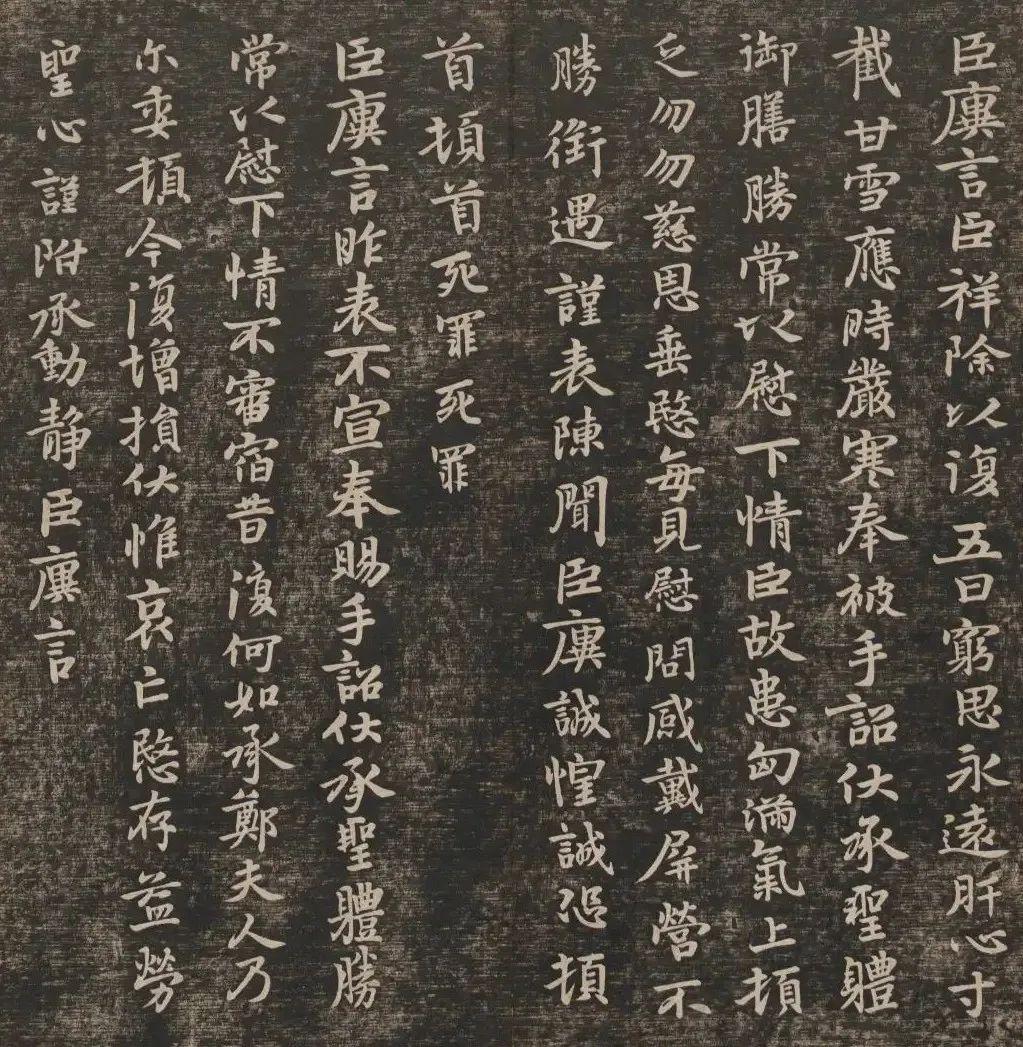 臣廙言臣祥除以復五日窮思永遠肝心寸
截甘雪應時嚴寒奉被手詔伏承聖體
御膳勝常以慰下情臣故患匈滿氣上頓
乏勿勿慈恩垂愍每見慰問感戴屏營不
勝銜遇謹表陳聞臣廙誠惶誠恐頓
首頓首死罪死罪
臣廙言昨表不宣奉賜手詔伏承聖體勝
常以慰下情不審宿昔復何如承鄭夫人乃
尓委頓今復增損伏惟哀亡愍存益勞
聖心謹附承動静臣廙言